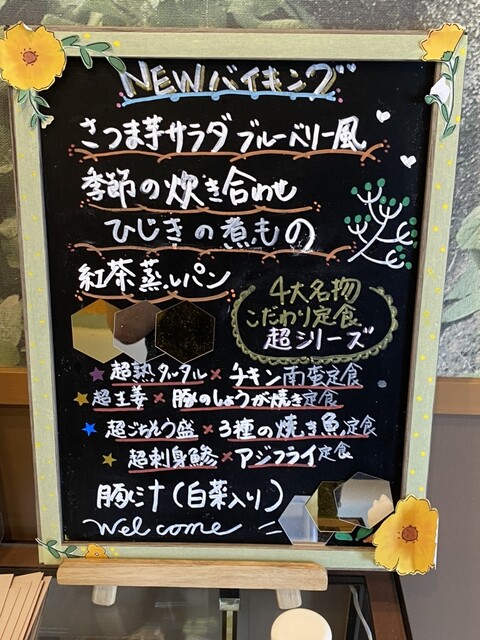 NEWバイキング
さつま芋サラダ ブルーベリー風
季節の炊き合わせ
ひじきの煮もの
紅茶蒸しパン
4大名物
こだわり定食
超シリーズ
超熟タルタル × チキン南蛮定食
超生姜 × 豚のしょうが焼き定食
超ごちそう盛 × 3種の焼き魚定食
超刺身鯵 × アジフライ定食
豚汁(白菜入り)
Welcome